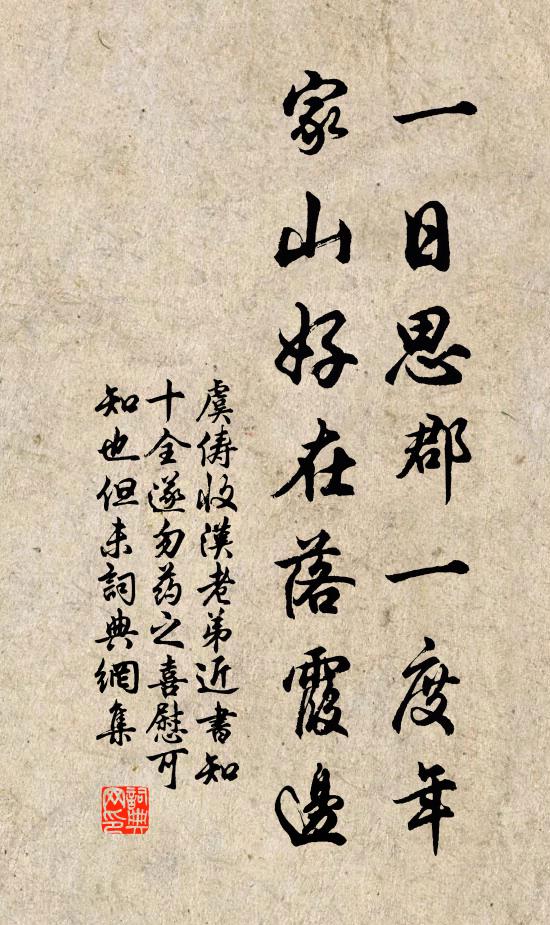 一日思郡一度年
家山好在落霞邊
虞儔收漢老弟近書知
十全遂勿药之喜慰可
知也但未詞典網集
詞典
网印